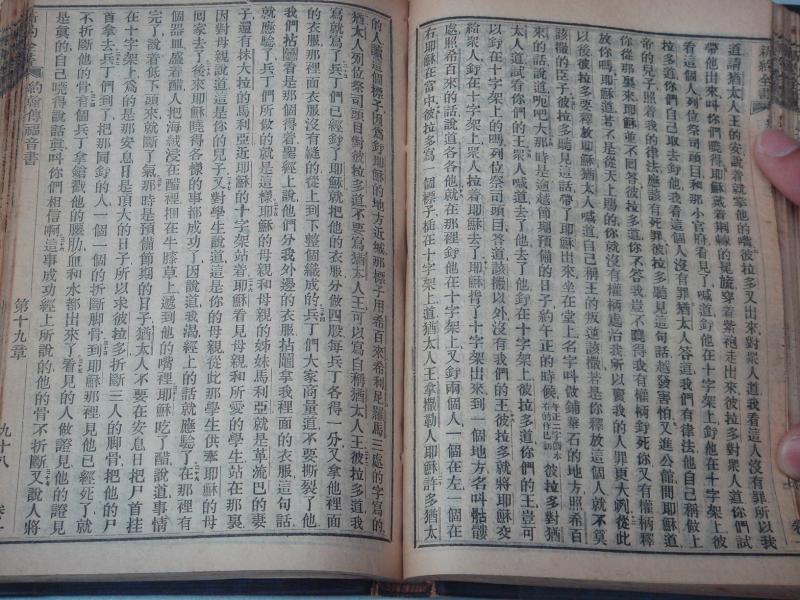 新約全書
道請猶太人王的安說着就掌他的嘴彼拉多又出來對衆人道我看這人沒有罪所以我
帶他出來叫你們曉得耶穌戴着荆棘的冕旒穿着紫袍走出來彼拉多對衆人道你們試
看這個人列位祭司頭目和那小官府看見了喊道釘他在十字架上釘他在十字架上彼
拉多道你們自己取去釘他我看這個人沒有罪猶太人答道我們有律法他自己稱做上
帝的兒子照着我的律法應該有死罪彼拉多聽見這話越發害怕又進公館問耶穌道
你從那裏來耶穌並不回答彼拉多道你不答我豈不曉得我有權柄釘死你又有權柄釋
放你嗎耶穌道若不是從天上賜的你就沒有權柄處治我所以賣我的人罪更大從此
以後彼拉多要釋放耶穌猶太人喊道自己稱王的叛逆該撒若是你釋放這個人就不算
該撒的臣子彼拉多聽見這話帶了耶穌出來坐在堂上名字叫做鋪華石的地方照希百
來的話說道呃吧大那時是逾越節期預備的日子約午正的時候彼拉多對猶
太人道試看你們的王衆人喊道去了他去了他釘他在十字架上彼拉多道你們的王豈可
以釘在十字架上的嗎列位祭司頭目答道該撒以外沒有我們的王彼拉多就將耶穌交
給衆人釘在十字架上衆人拉着耶穌去了耶穌揹了十字架出來到一個地方名叫骷髏
處照希百來的話說道各各他就在那裡釘他在十字架上又釘兩個人一個在左一個在
右耶穌在當中彼拉多寫一個標子插在十字架上道猶太人王拿撒勒人耶穌許多猶太
的人讀這個標子因爲釘耶穌的地方近城那標子用希百來希利尼羅馬三處的字寫的
猶太人列位祭司頭目對彼拉多道不要寫猶太人王可以寫自稱猶太人王彼拉多道我
寫就寫了兵丁們已經釘了耶穌就把他的衣服分做四股每兵丁各得一分又拿他裡面
的衣服那裡面衣服沒有縫的從上到下整個織成的兵丁們大家商量道不要撕裂了他
我們拈鬮看是那個得着聖經上說他們分我外邊的衣服拈鬮拿我裡面的衣服這句話
就應驗了兵丁們所做的就是這樣耶穌的母親和母親的姊妹馬利亞就是革流巴的妻
子還有抹大拉的馬利亞近耶穌的十字架站着耶穌看見母親和所愛的學生站在那裏
因對母親說道這是你的兒子又對學生說道這是你的母親從此那學生供奉耶穌的母
囘家去了後來耶穌曉得各樣的事都成功了因說道我渴經上的話就應驗了在那裡有
個器皿盛着醋人把海絨浸在醋裡捆在牛膝草上遞到他的嘴裡耶穌吃了醋說道事情
完了說着低下頭來就斷了氣那時是預備節期的日子猶太人不要在安息日把尸首挂
在十字架上爲的是那安息日是頂大的日子所以求彼拉多折斷三人的脚骨把他的尸
首拿去兵丁們到了把那同釘的人一個一個的折斷脚骨到耶穌那裡見他已經死了就
不折斷他的骨有個兵丁拿鎗戳他的脇肋血和水都出來了看見的人做證見他的證見
是眞的自己曉得說話眞叫你們相信啊這事成功經上所說的他的骨不折斷又說人將
新約全書 約翰傳福音書 第十九章 九十八